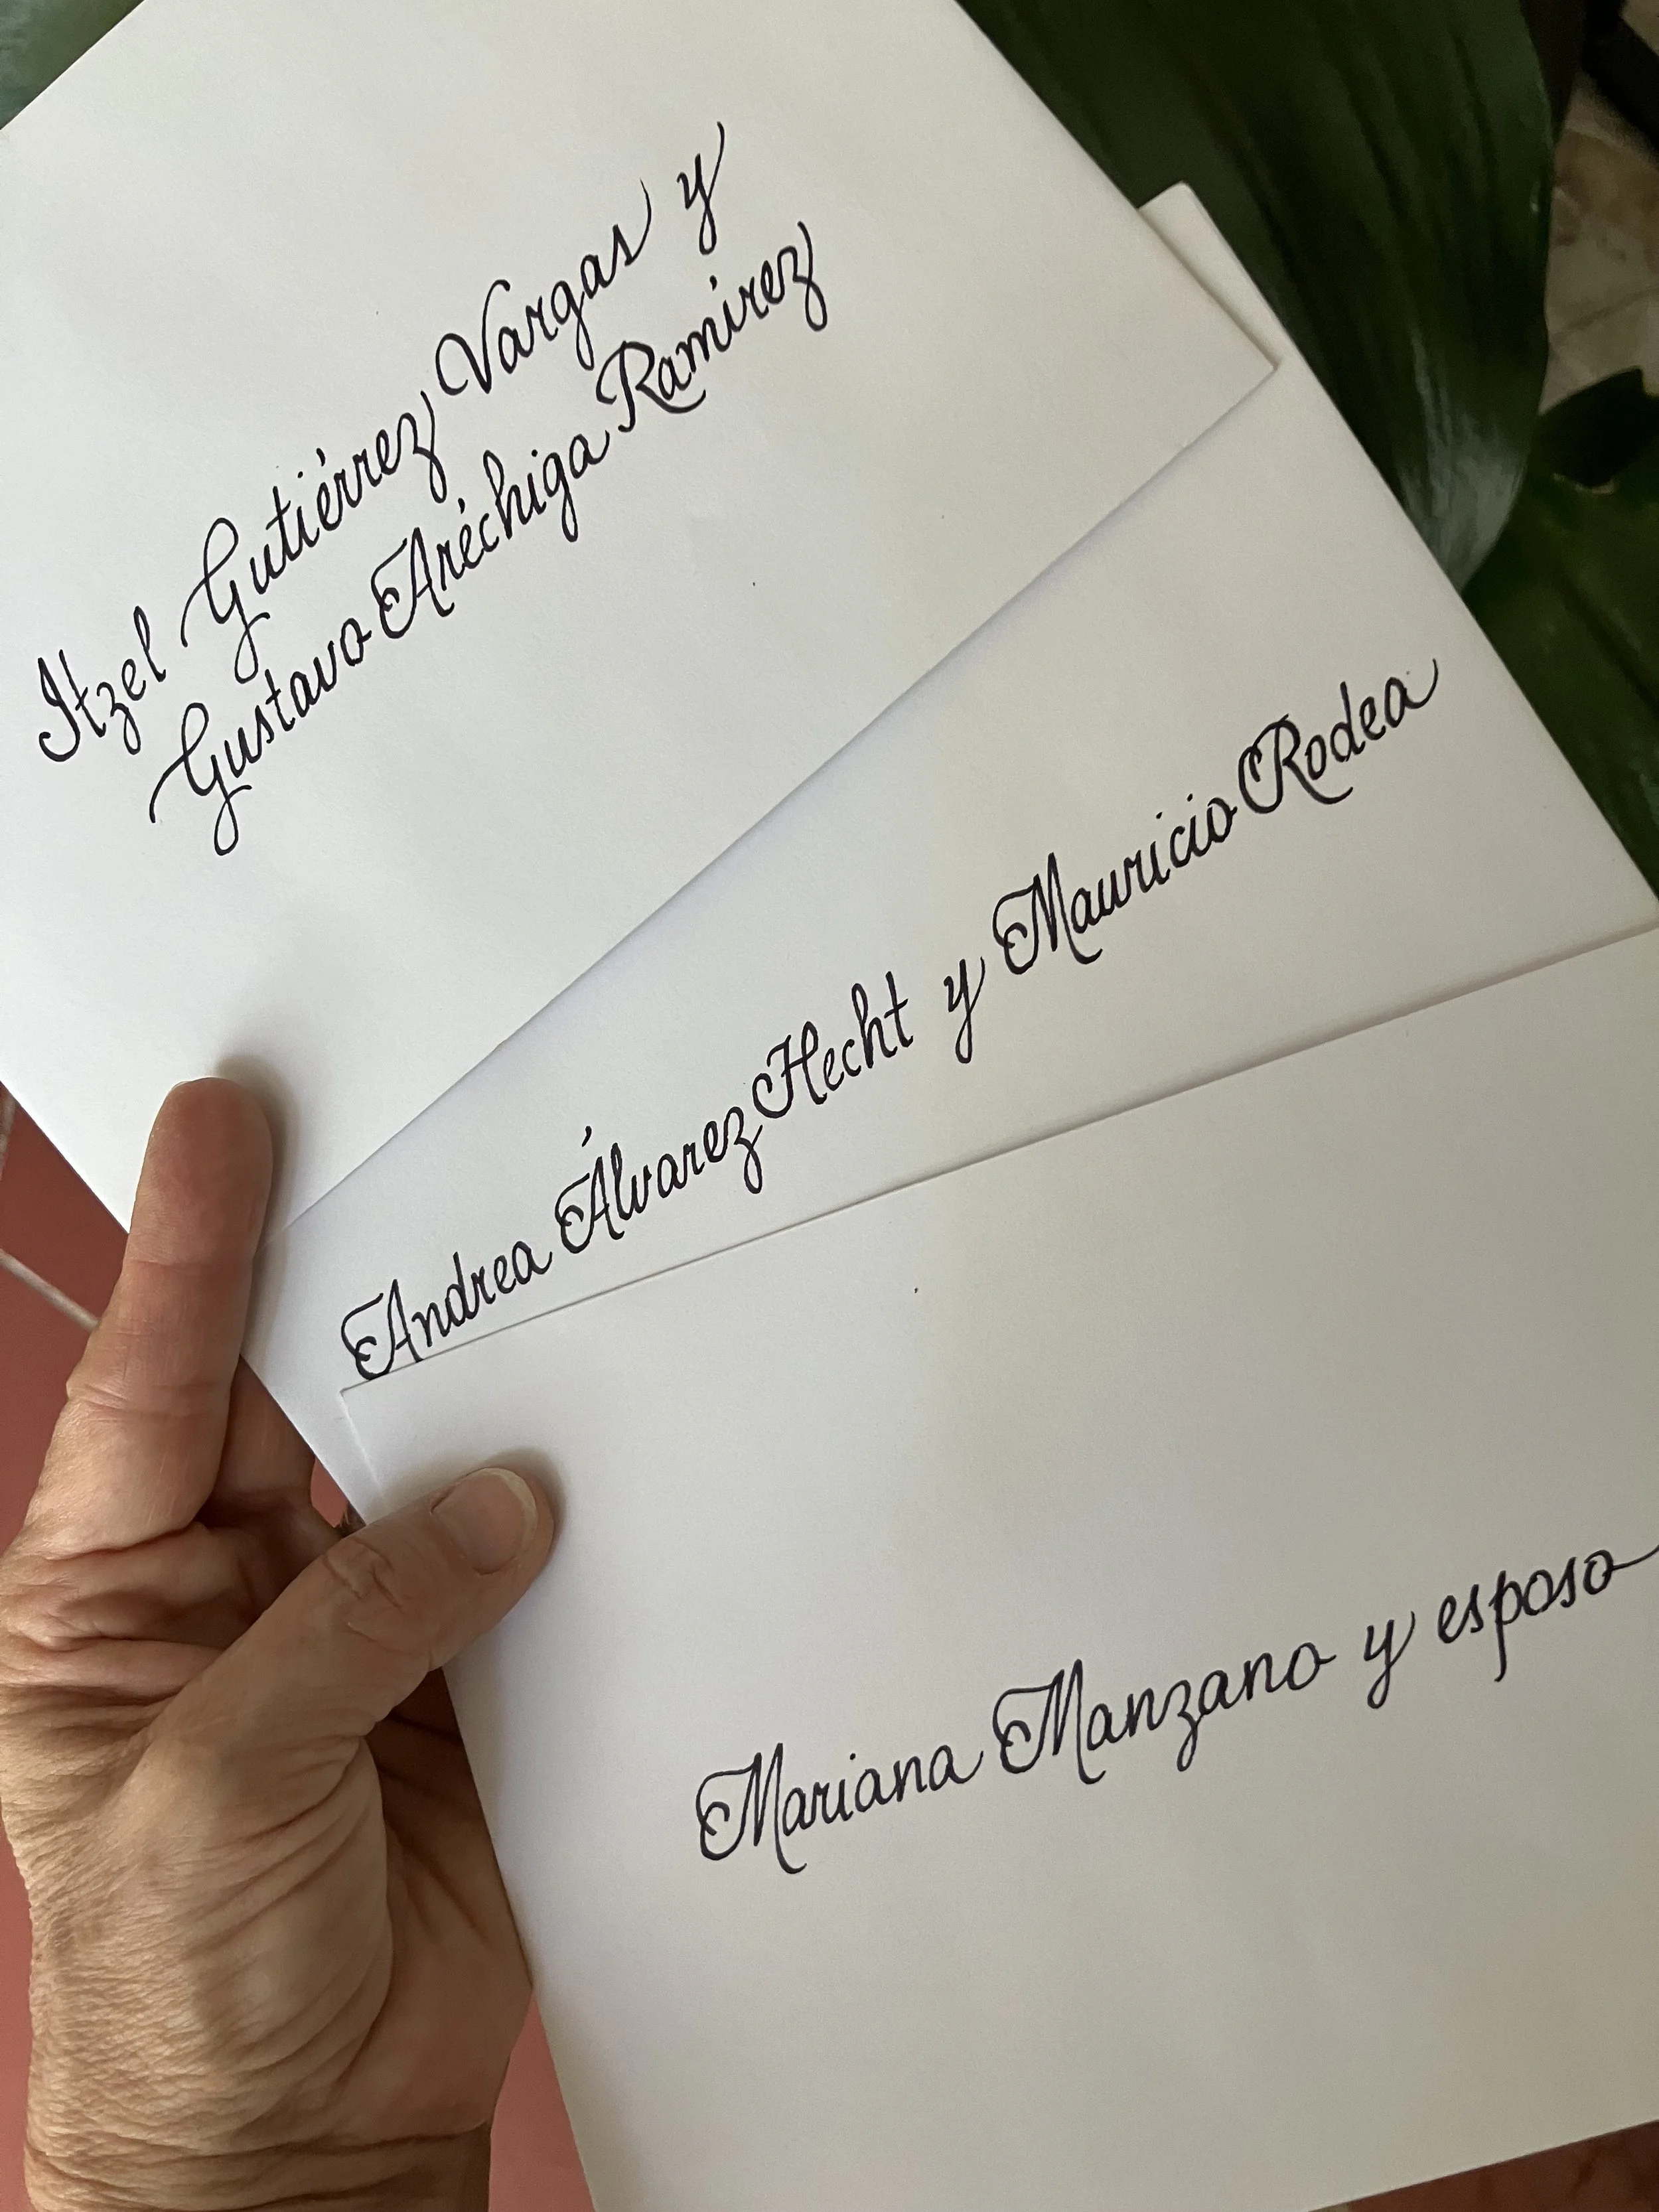 Itzel Gutiérrez Vargas y
Gustavo Aréchiga Ramírez
Andrea Álvarez Hecht y Mauricio Rodea
Mariana Manzano y esposo